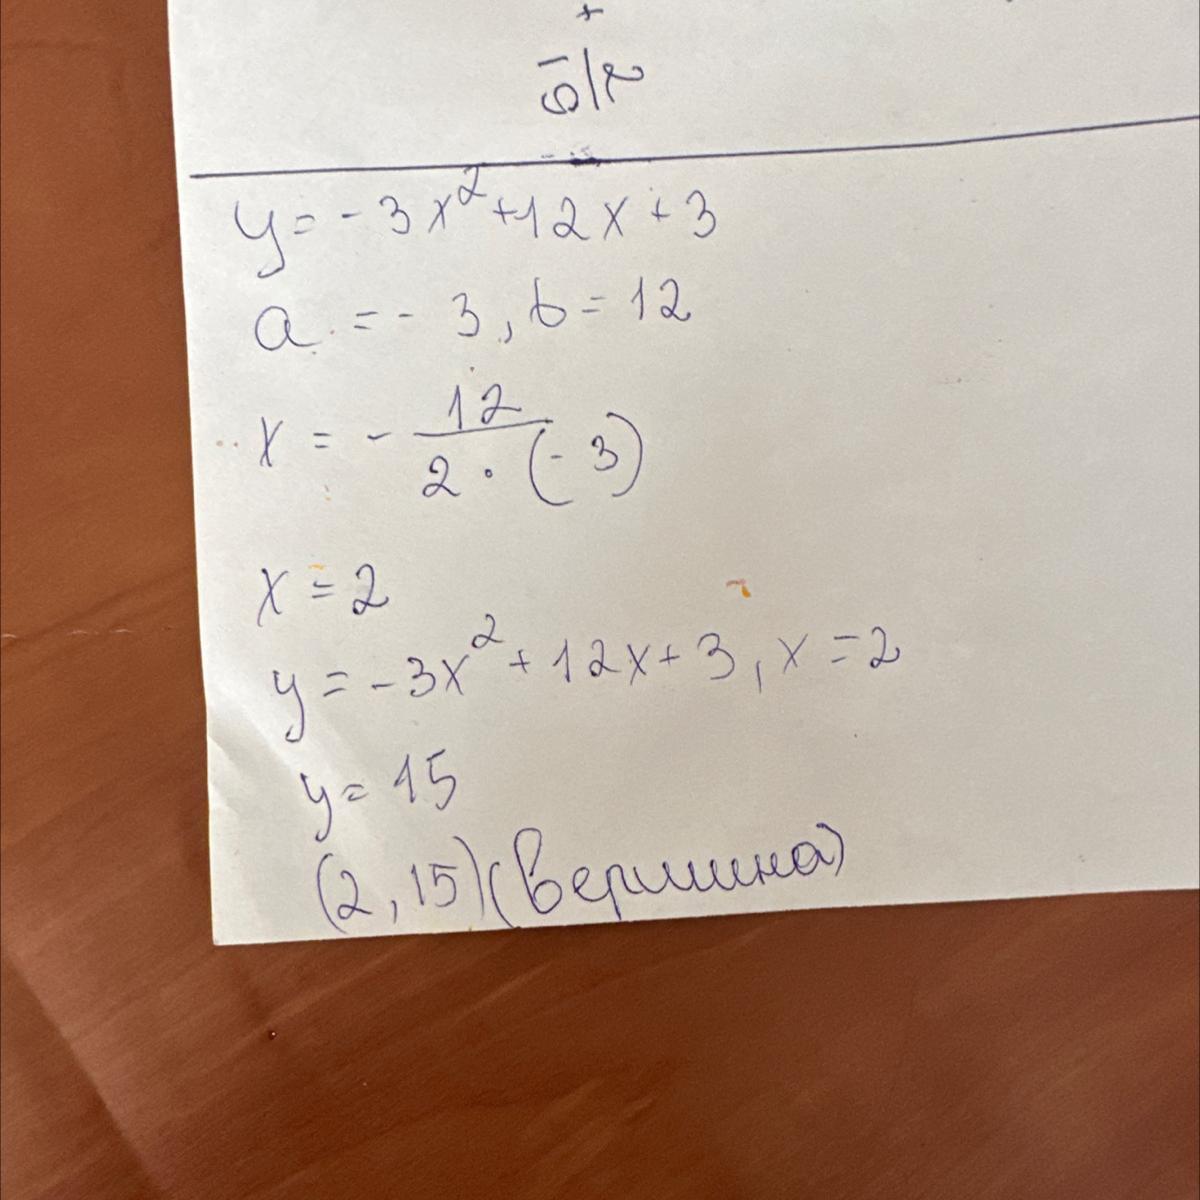 y = -3x² + 12x + 3
a = - 3, b = 12
x = - 12 / 2 · (-3)
x = 2
y = -3x² + 12x + 3, x = 2
y = 15
(2, 15) (вершина)